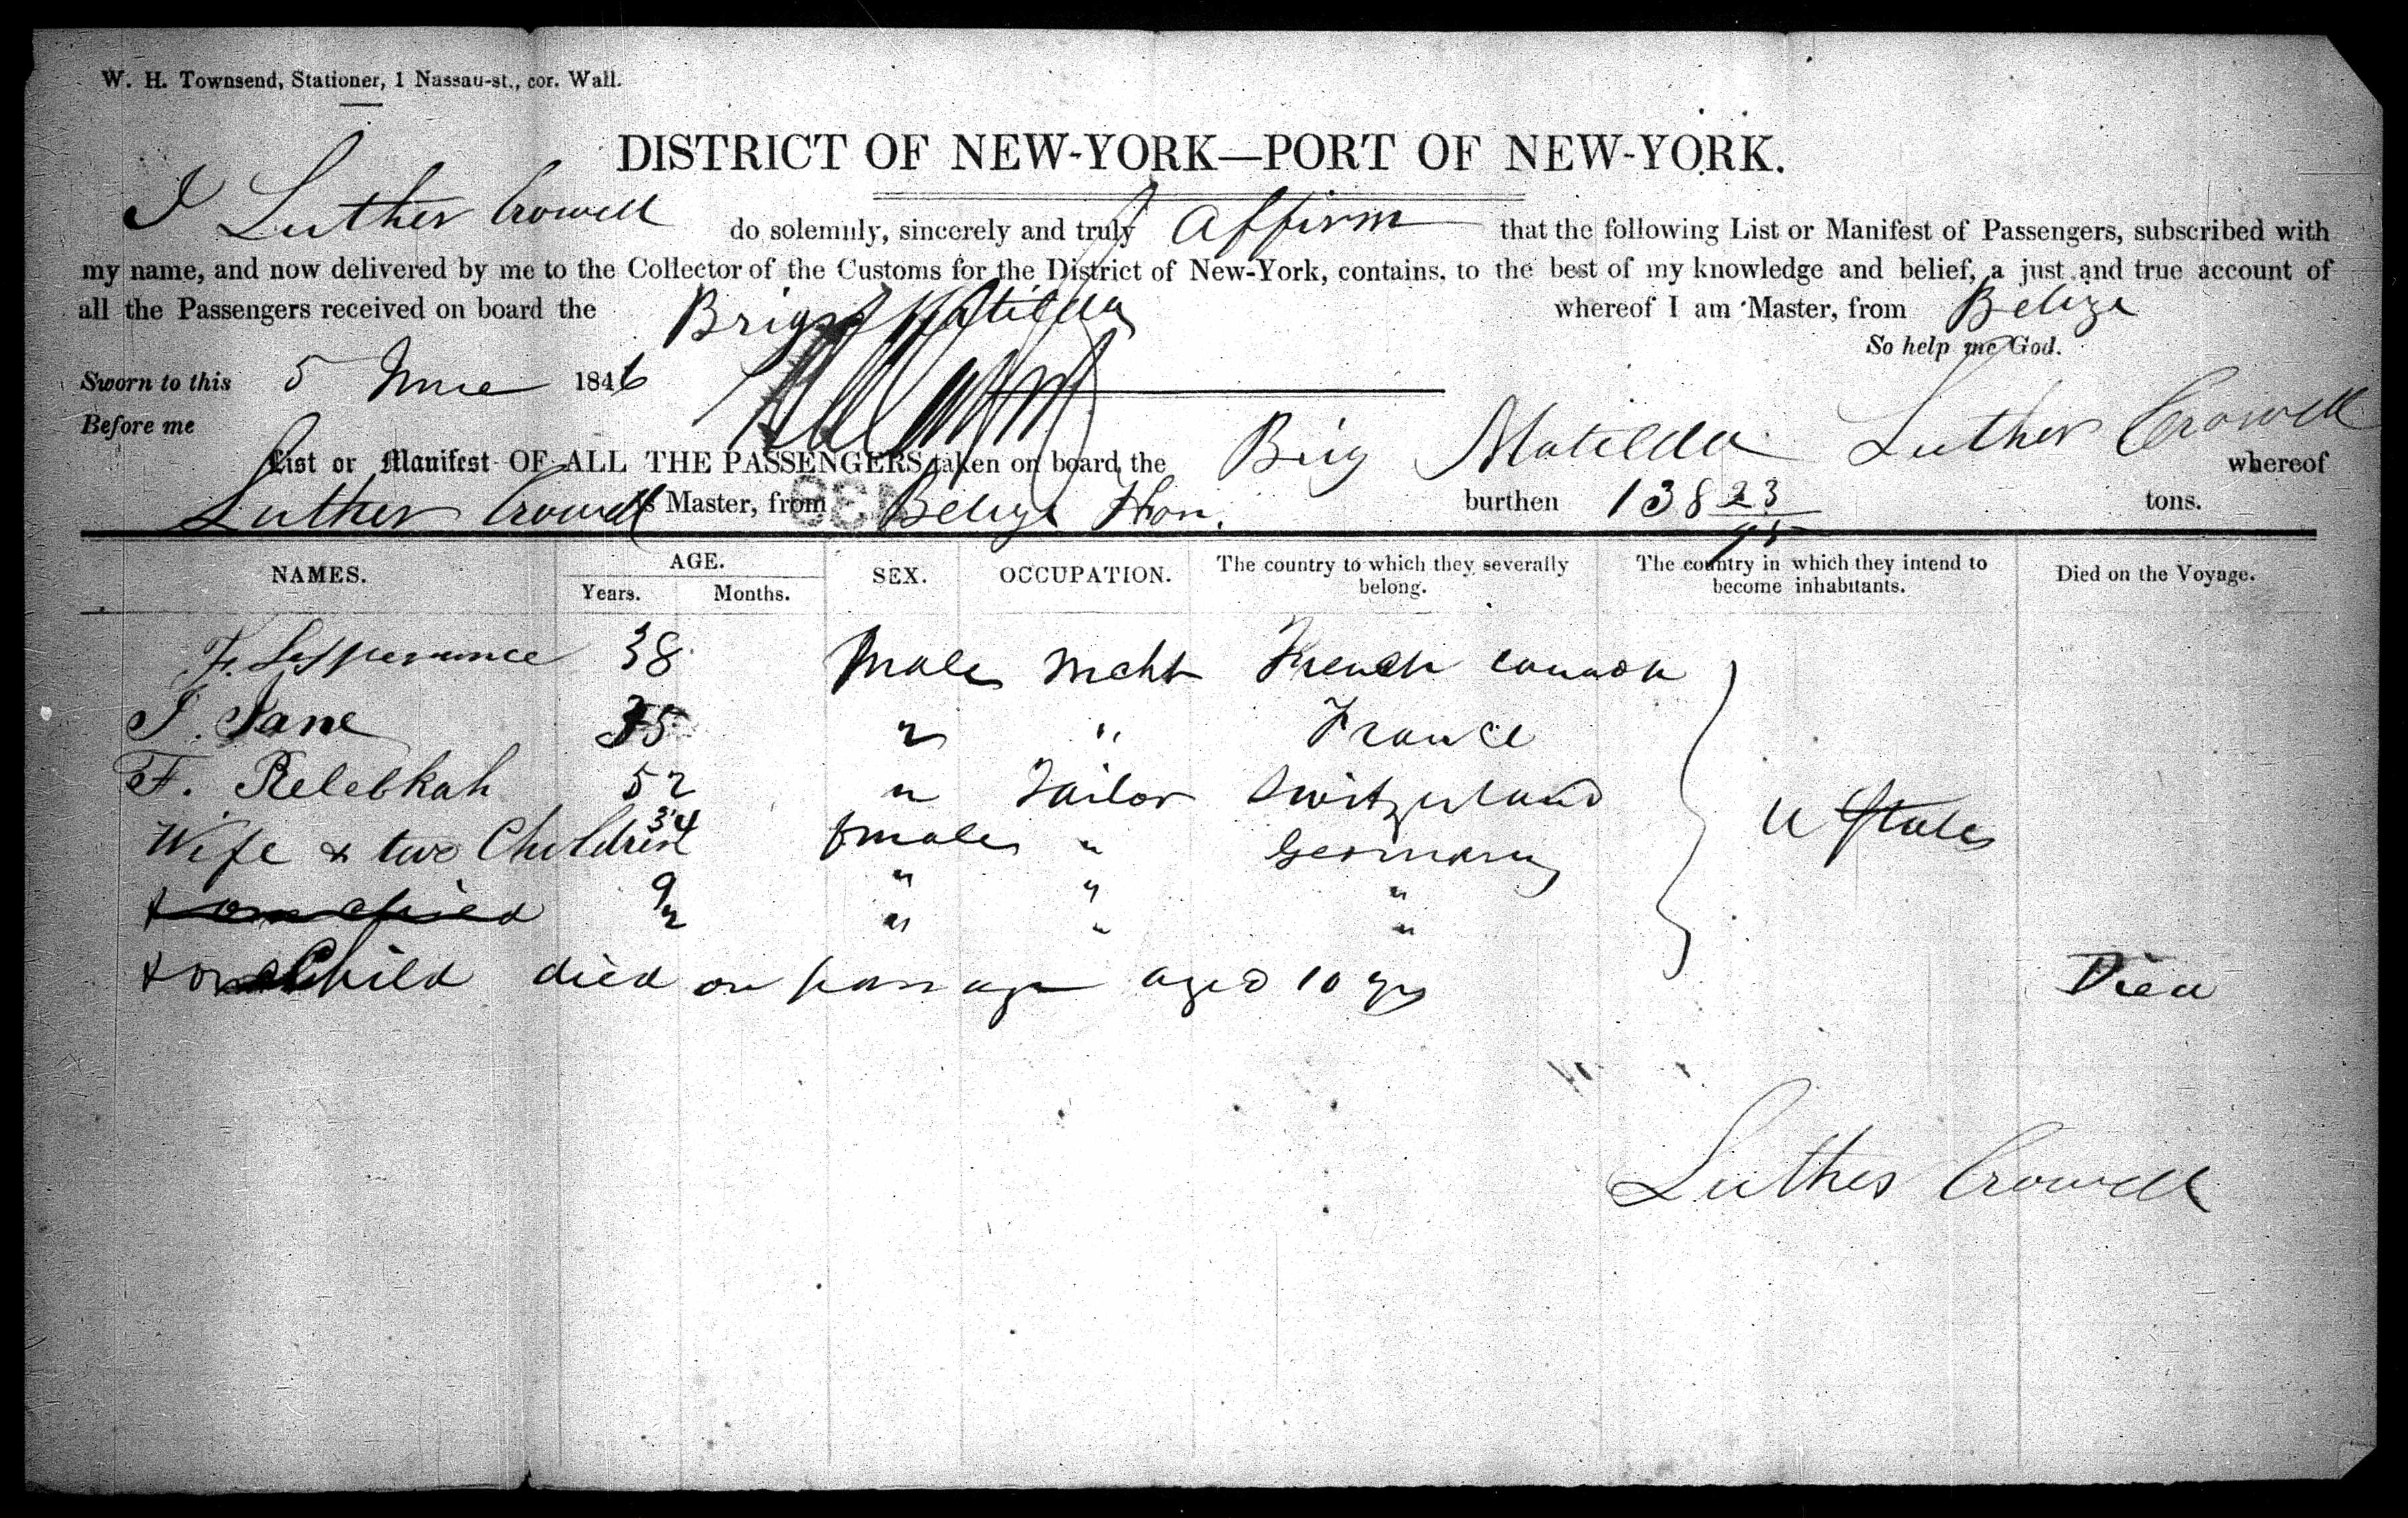 W. H. Townsend, Stationer, 1 Nassau-st., cor. Wall.
DISTRICT OF NEW-YORK—PORT OF NEW-YORK.
I Luther Crowell do solemnly, sincerely and truly affirm that the following List or Manifest of Passengers, subscribed with
my name, and now delivered by me to the Collector of the Customs for the District of New-York, contains, to the best of my knowledge and belief, a just and true account of
all the Passengers received on board the Brig Matilda whereof I am Master, from Belize
So help me God.
Sworn to this 5 June 1846
Before me Luther Crowell
List or Manifest OF ALL THE PASSENGERS taken on board the Brig Matilda whereof
Luther Crowell is Master, from Belize Hon. burthen 138 23/95 tons.
NAMES. AGE. Years. Months. SEX. OCCUPATION. The country to which they severally belong. The country in which they intend to become inhabitants. Died on the Voyage.
F. Lesperance 38 Male Mcht French
J. Jane 35 " " France
F. 52 " Tailor Switzerland
Wife & two Children 34 female " Germany U States
9 " " "
2 " " "
& one Child died on passage aged 10 yrs Died
Luther Crowell